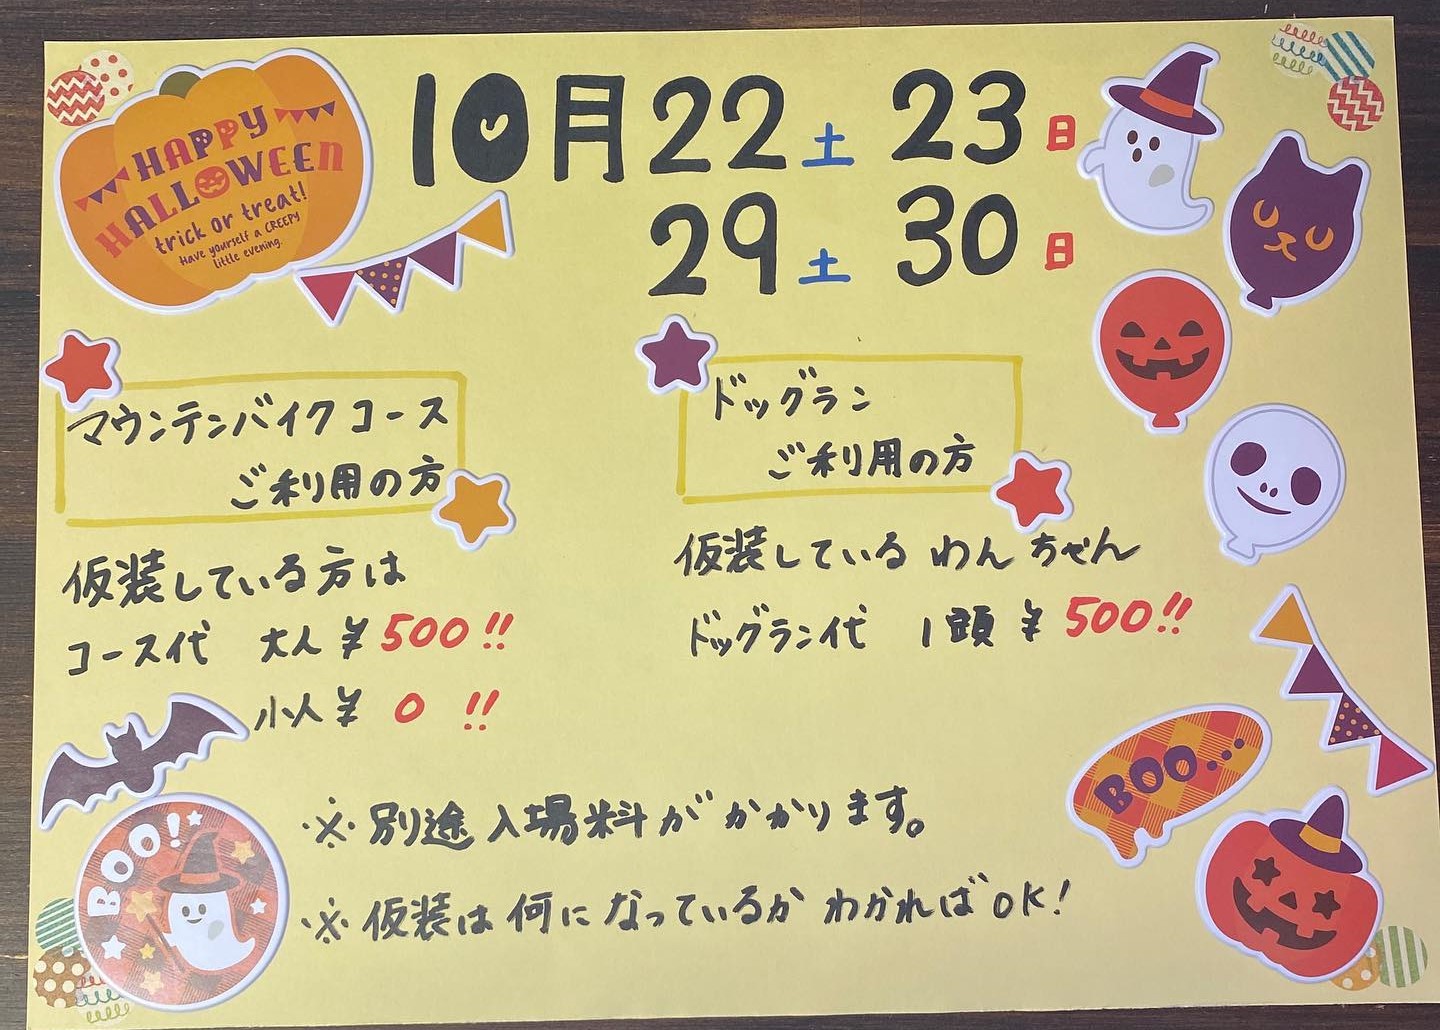 HAPPY
HALLOWEEN
trick or treat!
Have yourself a CREEPY
little evening.
10月22土 23日
29土 30日
マウンテンバイクコース
ご利用の方
仮装している方は
コース代 大人¥500!!
小人¥0!!
ドッグラン
ご利用の方
仮装しているわんちゃん
ドッグラン代 1頭¥500!!
BOO...
BOO!
※別途入場料がかかります。
※仮装は何になっているかわかればOK!